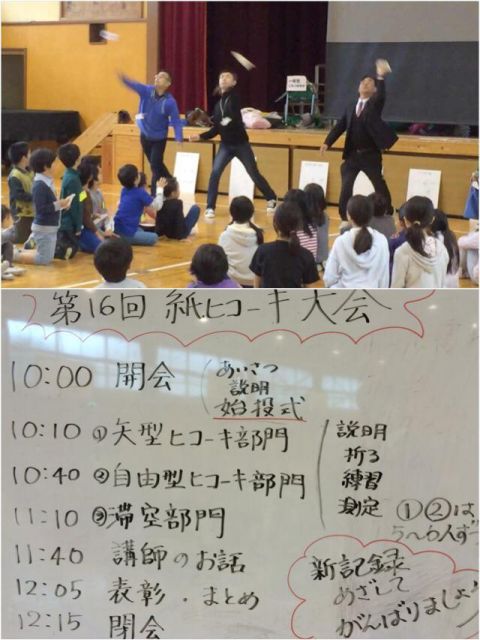 第16回 紙ヒコーキ大会
10:00 開会
あいさつ
説明
始投式
10:10 ①矢型ヒコーキ部門
10:40 ②自由型ヒコーキ部門
11:10 ③滞空部門
説明
折る
練習
測定
①②は
5〜6人ず
11:40 講師のお話
12:05 表彰・まとめ
12:15 閉会
新記録
めざして
がんばりましょう